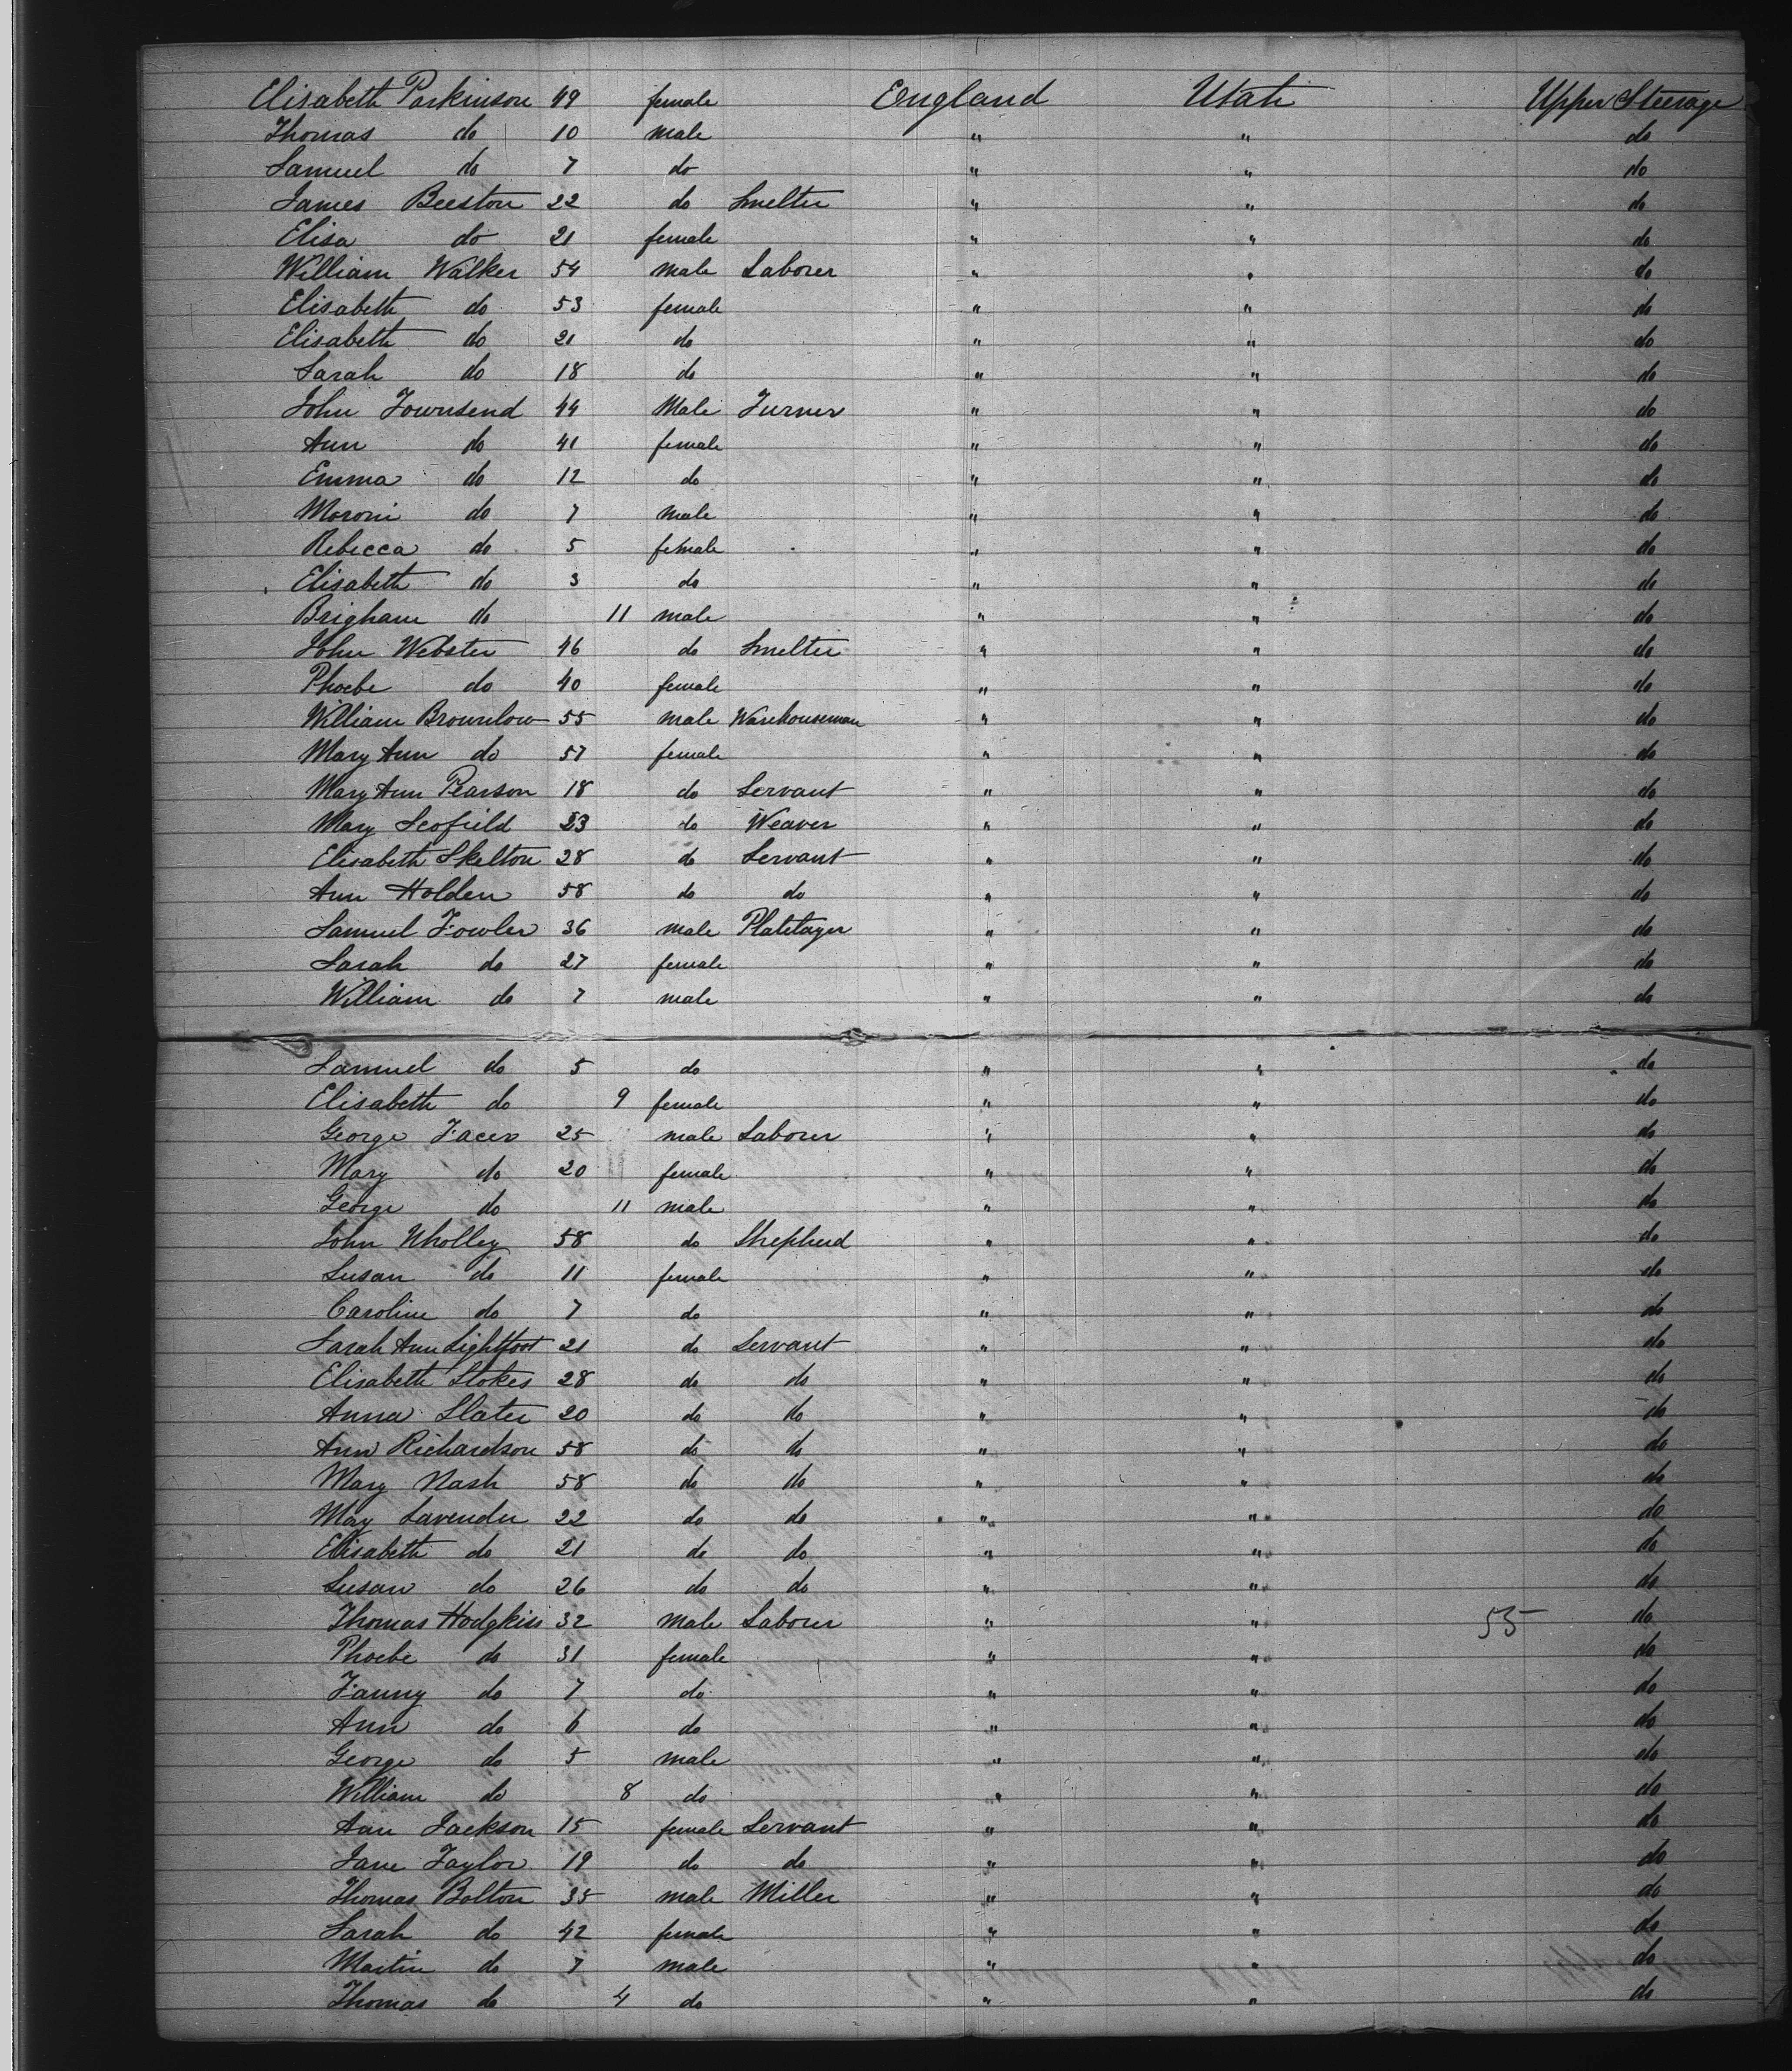 Elisabeth Parkinson 49 female England Utah Upper Steerage
Thomas do 10 male " " do
Samuel do 7 do " " do
James Beeston 22 do Smelter " " do
Elisa do 21 female " " do
William Walker 54 male Laborer " " do
Elisabeth do 53 female " " do
Elisabeth do 21 do " " do
Sarah do 18 do " " do
John Townsend 44 Male Turner " " do
Ann do 41 female " " do
Emma do 12 do " " do
Moroni do 7 male " " do
Rebecca do 5 female " " do
Elisabeth do 3 do " " do
Brigham do 11 male " " do
John Webster 46 do Smelter " " do
Phoebe do 40 female " " do
William Brownlow 55 male Warehouseman " " do
Mary Ann do 57 female " " do
Mary Ann Pearson 18 do Servant " " do
Mary Scofield 23 do Weaver " " do
Elisabeth Skelton 28 do Servant " " do
Ann Holden 58 do do " " do
Samuel Fowler 36 male Platelayer " " do
Sarah do 27 female " " do
William do 7 male " " do
Samuel do 5 do " " do
Elisabeth do 9 female " " do
George Facer 25 male Laborer " " do
Mary do 20 female " " do
George do 11 male " " do
John Wholley 58 do Shepherd " " do
Susan do 11 female " " do
Caroline do 7 do " " do
Sarah Ann Lightfoot 21 do Servant " " do
Elisabeth Stokes 28 do do " " do
Anna Slater 20 do do " " do
Ann Richardson 58 do do " " do
Mary Nash 58 do do " " do
May Lavender 22 do do " " do
Elisabeth do 21 do do " " do
Susan do 26 do do " " do
Thomas Hodgkiss 32 male Laborer " " 55 do
Phoebe do 31 female " " do
Fanny do 7 do " " do
Ann do 6 do " " do
George do 5 male " " do
William do 8 do " " do
Ann Jackson 15 female Servant " " do
Jane Taylor 19 do do " " do
Thomas Bolton 35 male Miller " " do
Sarah do 42 female " " do
Martin do 7 male " " do
Thomas do 4 do " " do